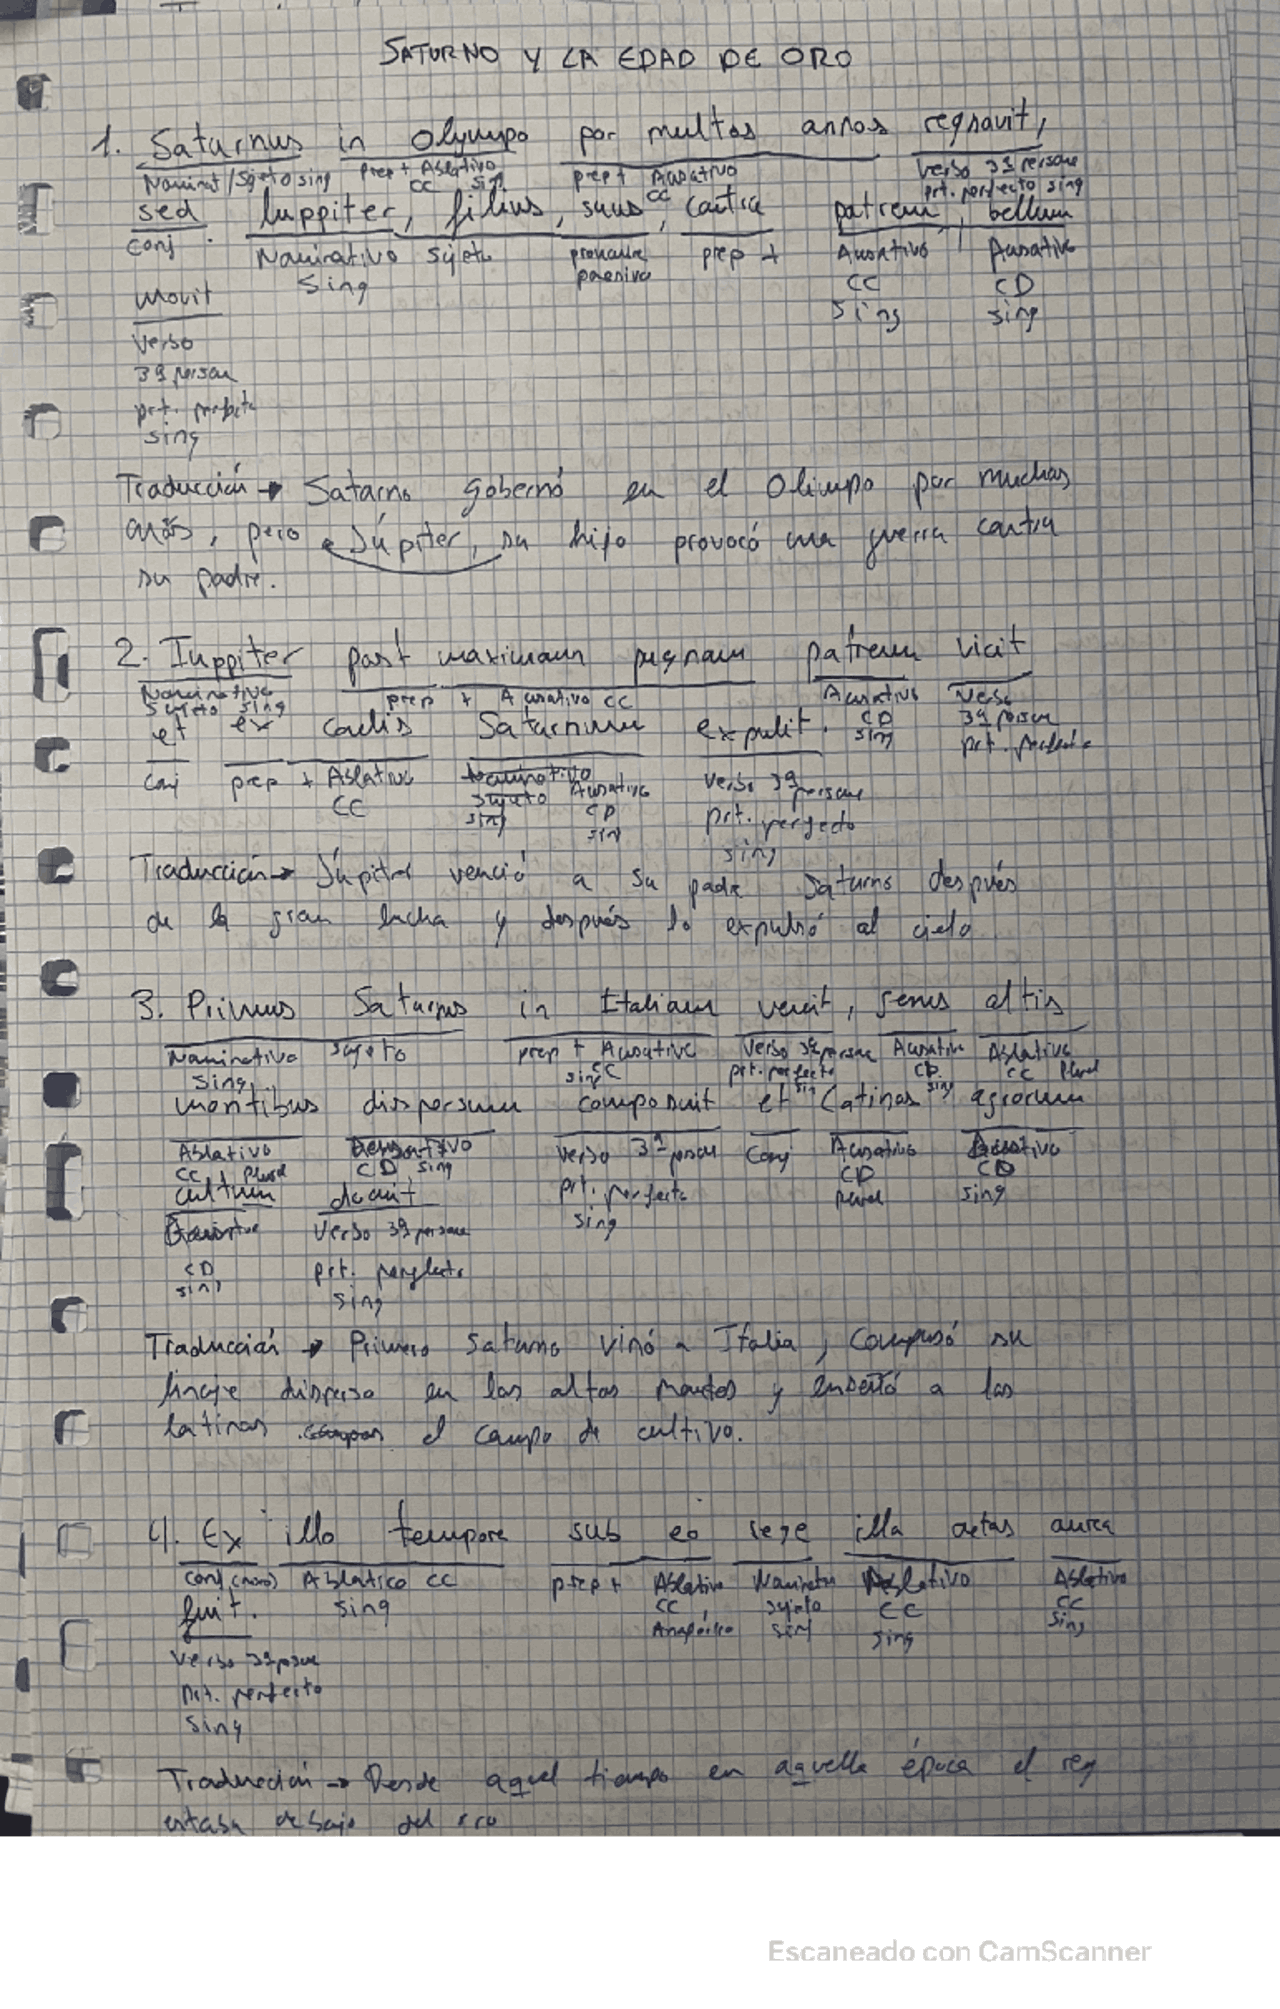 SATURNO Y LA EDAD DE ORO
1. Saturnus in Olympo por multos annos regnavit,
Nominat/Sujeto sing prep + Ablativo CC sing prep + Acusativo CC verbo 3ª persona prt. perfecto sing
sed Iuppiter, filius, suus, contra patrem, bellum
conj. Nominativo sujeto sing pronombre posesivo prep + Acusativo CC sing Acusativo CD sing
movit
verbo
3ª persona
prt. perfecto
sing
Traducción → Saturno gobernó en el Olimpo por muchos
años, pero Júpiter, su hijo provocó una guerra contra
su padre.
2. Iuppiter post maximam pugnam patrem vicit
Nominativo sujeto sing prep + Acusativo CC Acusativo CD sing Verbo 3ª persona prt. perfecto
et ex caelis Saturnum expulit.
conj prep + Ablativo CC Acusativo CD sing verbo 3ª persona prt. perfecto sing
Traducción → Júpiter venció a su padre Saturno después
de la gran lucha y después lo expulsó al cielo
3. Primus Saturnus in Italiam venit, genus altis
Nominativo sujeto sing prep + Acusativo CC sing Verbo 3ª persona prt. perfecto sing Acusativo CD sing Ablativo CC plural
montibus dispersum composuit et Latinos agrorum
Ablativo CC plural CD sing verbo 3ª persona prt. perfecto sing conj Acusativo CD plural CD sing
cultum docuit
CD sing verbo 3ª persona prt. perfecto sing
Traducción → Primero Saturno vinó a Italia, compusó su
linaje disperso en los altos montes y enseñó a los
latinos el campo de cultivo.
4. Ex illo tempore sub eo rege illa aetas aurea
conj (nexo) Ablativo CC sing prep + Ablativo CC, Anafórico Nominativo sujeto sing Ablativo CC sing Ablativo CC sing
fuit.
verbo 3ª persona
prt. perfecto
sing
Traducción → Desde aquel tiempo en aquella época el rey
estaba debajo del oro
Escaneado con CamScanner